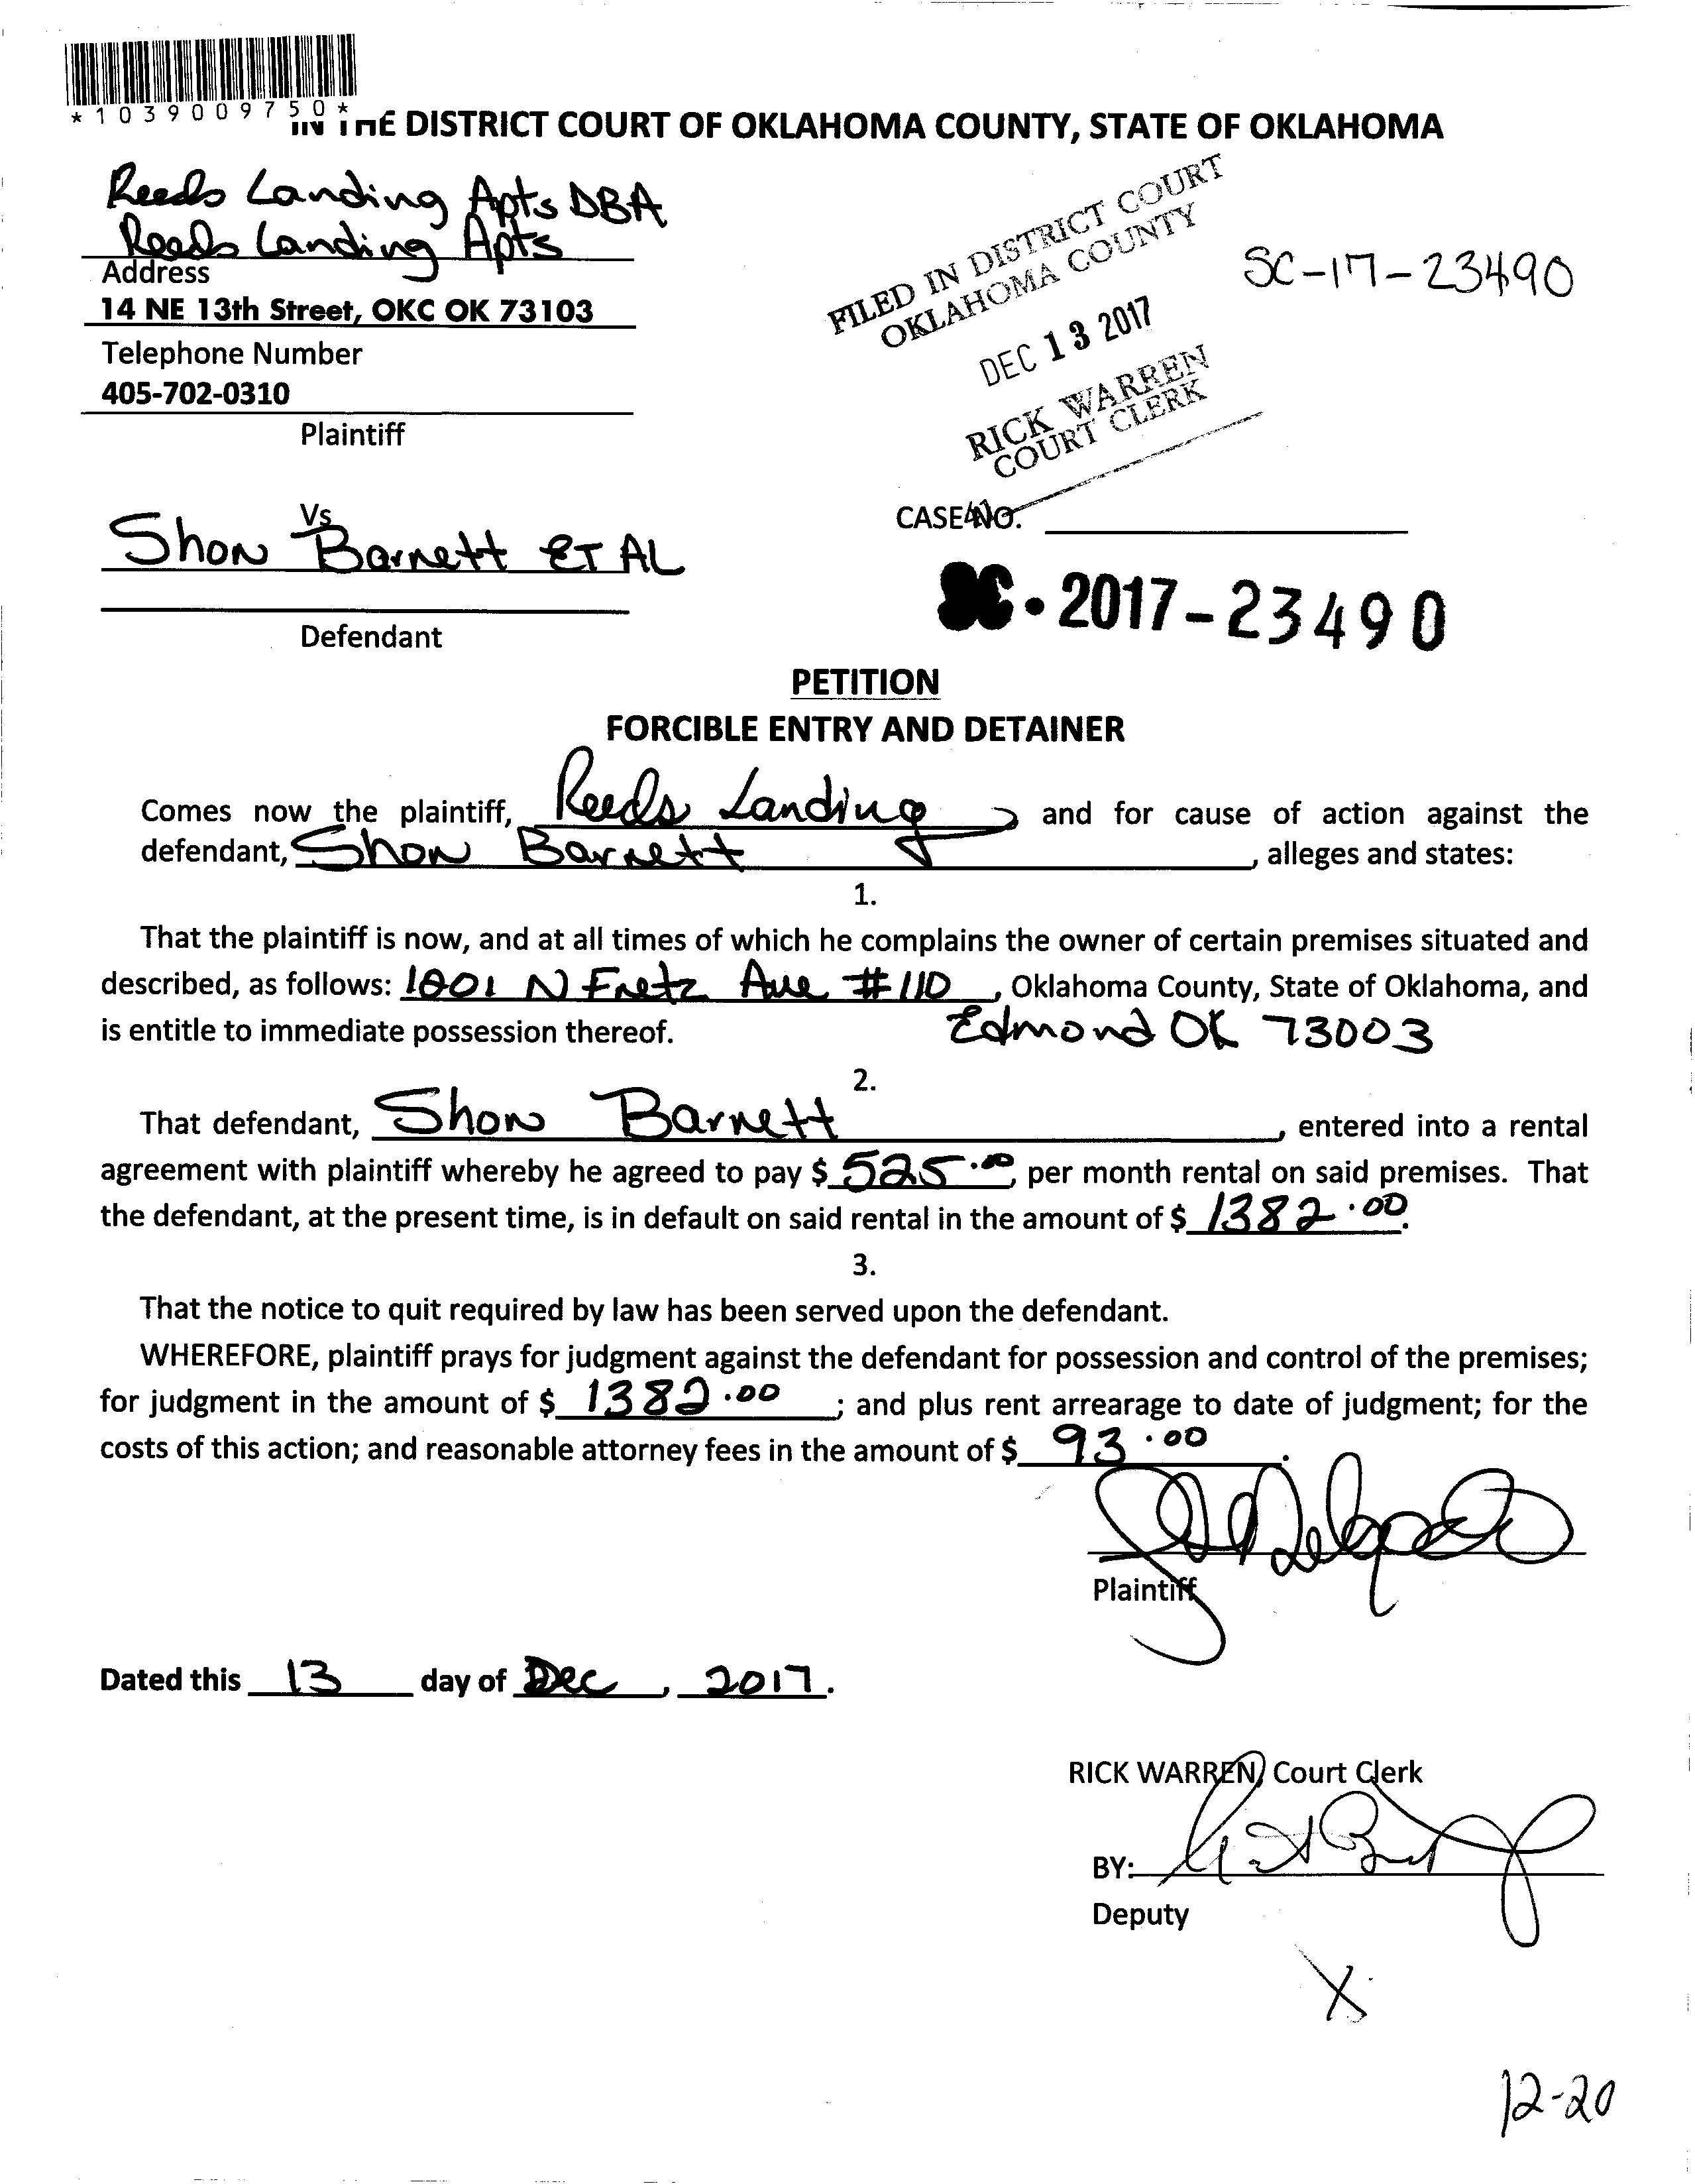 *1039009750*
IN THE DISTRICT COURT OF OKLAHOMA COUNTY, STATE OF OKLAHOMA
Reeds Landing Apts DBA
Reeds Landing Apts
Address
14 NE 13th Street, OKC OK 73103
Telephone Number
405-702-0310
Plaintiff
FILED IN DISTRICT COURT
OKLAHOMA COUNTY
DEC 13 2017
RICK WARREN
COURT CLERK
SC-17-23490
Vs
Shon Barnett ET AL
Defendant
CASE NO.
SC-2017-23490
PETITION
FORCIBLE ENTRY AND DETAINER
Comes now the plaintiff, Reeds Landing and for cause of action against the
defendant, Shon Barnett, alleges and states:
1.
That the plaintiff is now, and at all times of which he complains the owner of certain premises situated and
described, as follows: 1001 N Fretz Ave #110, Oklahoma County, State of Oklahoma, and
is entitle to immediate possession thereof. Edmond OK 73003
2.
That defendant, Shon Barnett, entered into a rental
agreement with plaintiff whereby he agreed to pay $ 525.00, per month rental on said premises. That
the defendant, at the present time, is in default on said rental in the amount of $ 1382.00.
3.
That the notice to quit required by law has been served upon the defendant.
WHEREFORE, plaintiff prays for judgment against the defendant for possession and control of the premises;
for judgment in the amount of $ 1382.00; and plus rent arrearage to date of judgment; for the
costs of this action; and reasonable attorney fees in the amount of $ 93.00.
Plaintiff
Dated this 13 day of Dec, 2017.
RICK WARREN, Court Clerk
BY:
Deputy
X
12-20